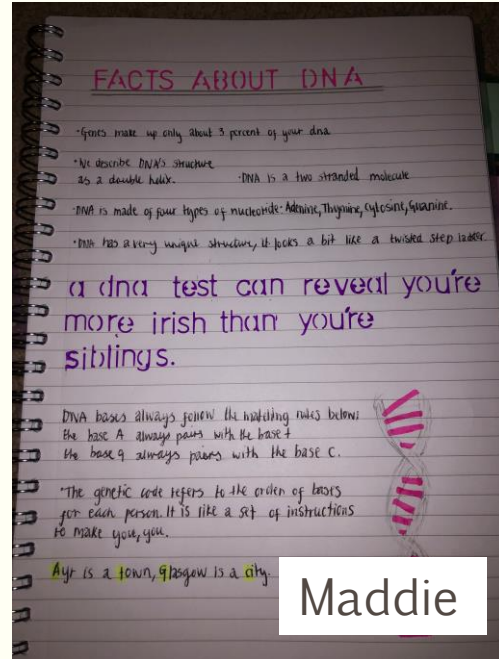 FACTS ABOUT DNA
·Genes make up only about 3 percent of your dna
·We describe DNA's structure
as a double helix.
·DNA is a two stranded molecule
·DNA is made of four types of nucleotide· Adenine, Thymine, Cytosine, Guanine.
·DNA has a very unique structure, it looks a bit like a twisted step ladder.
a dna test can reveal you're
more irish than you're
siblings.
DNA bases always follow the matching rules below:
the base A always pairs with the base t
the base g always pairs with the base c.
·The genetic code refers to the order of bases
for each person. It is like a set of instructions
to make you, you.
Ayr is a town, Glasgow is a city.
Maddie